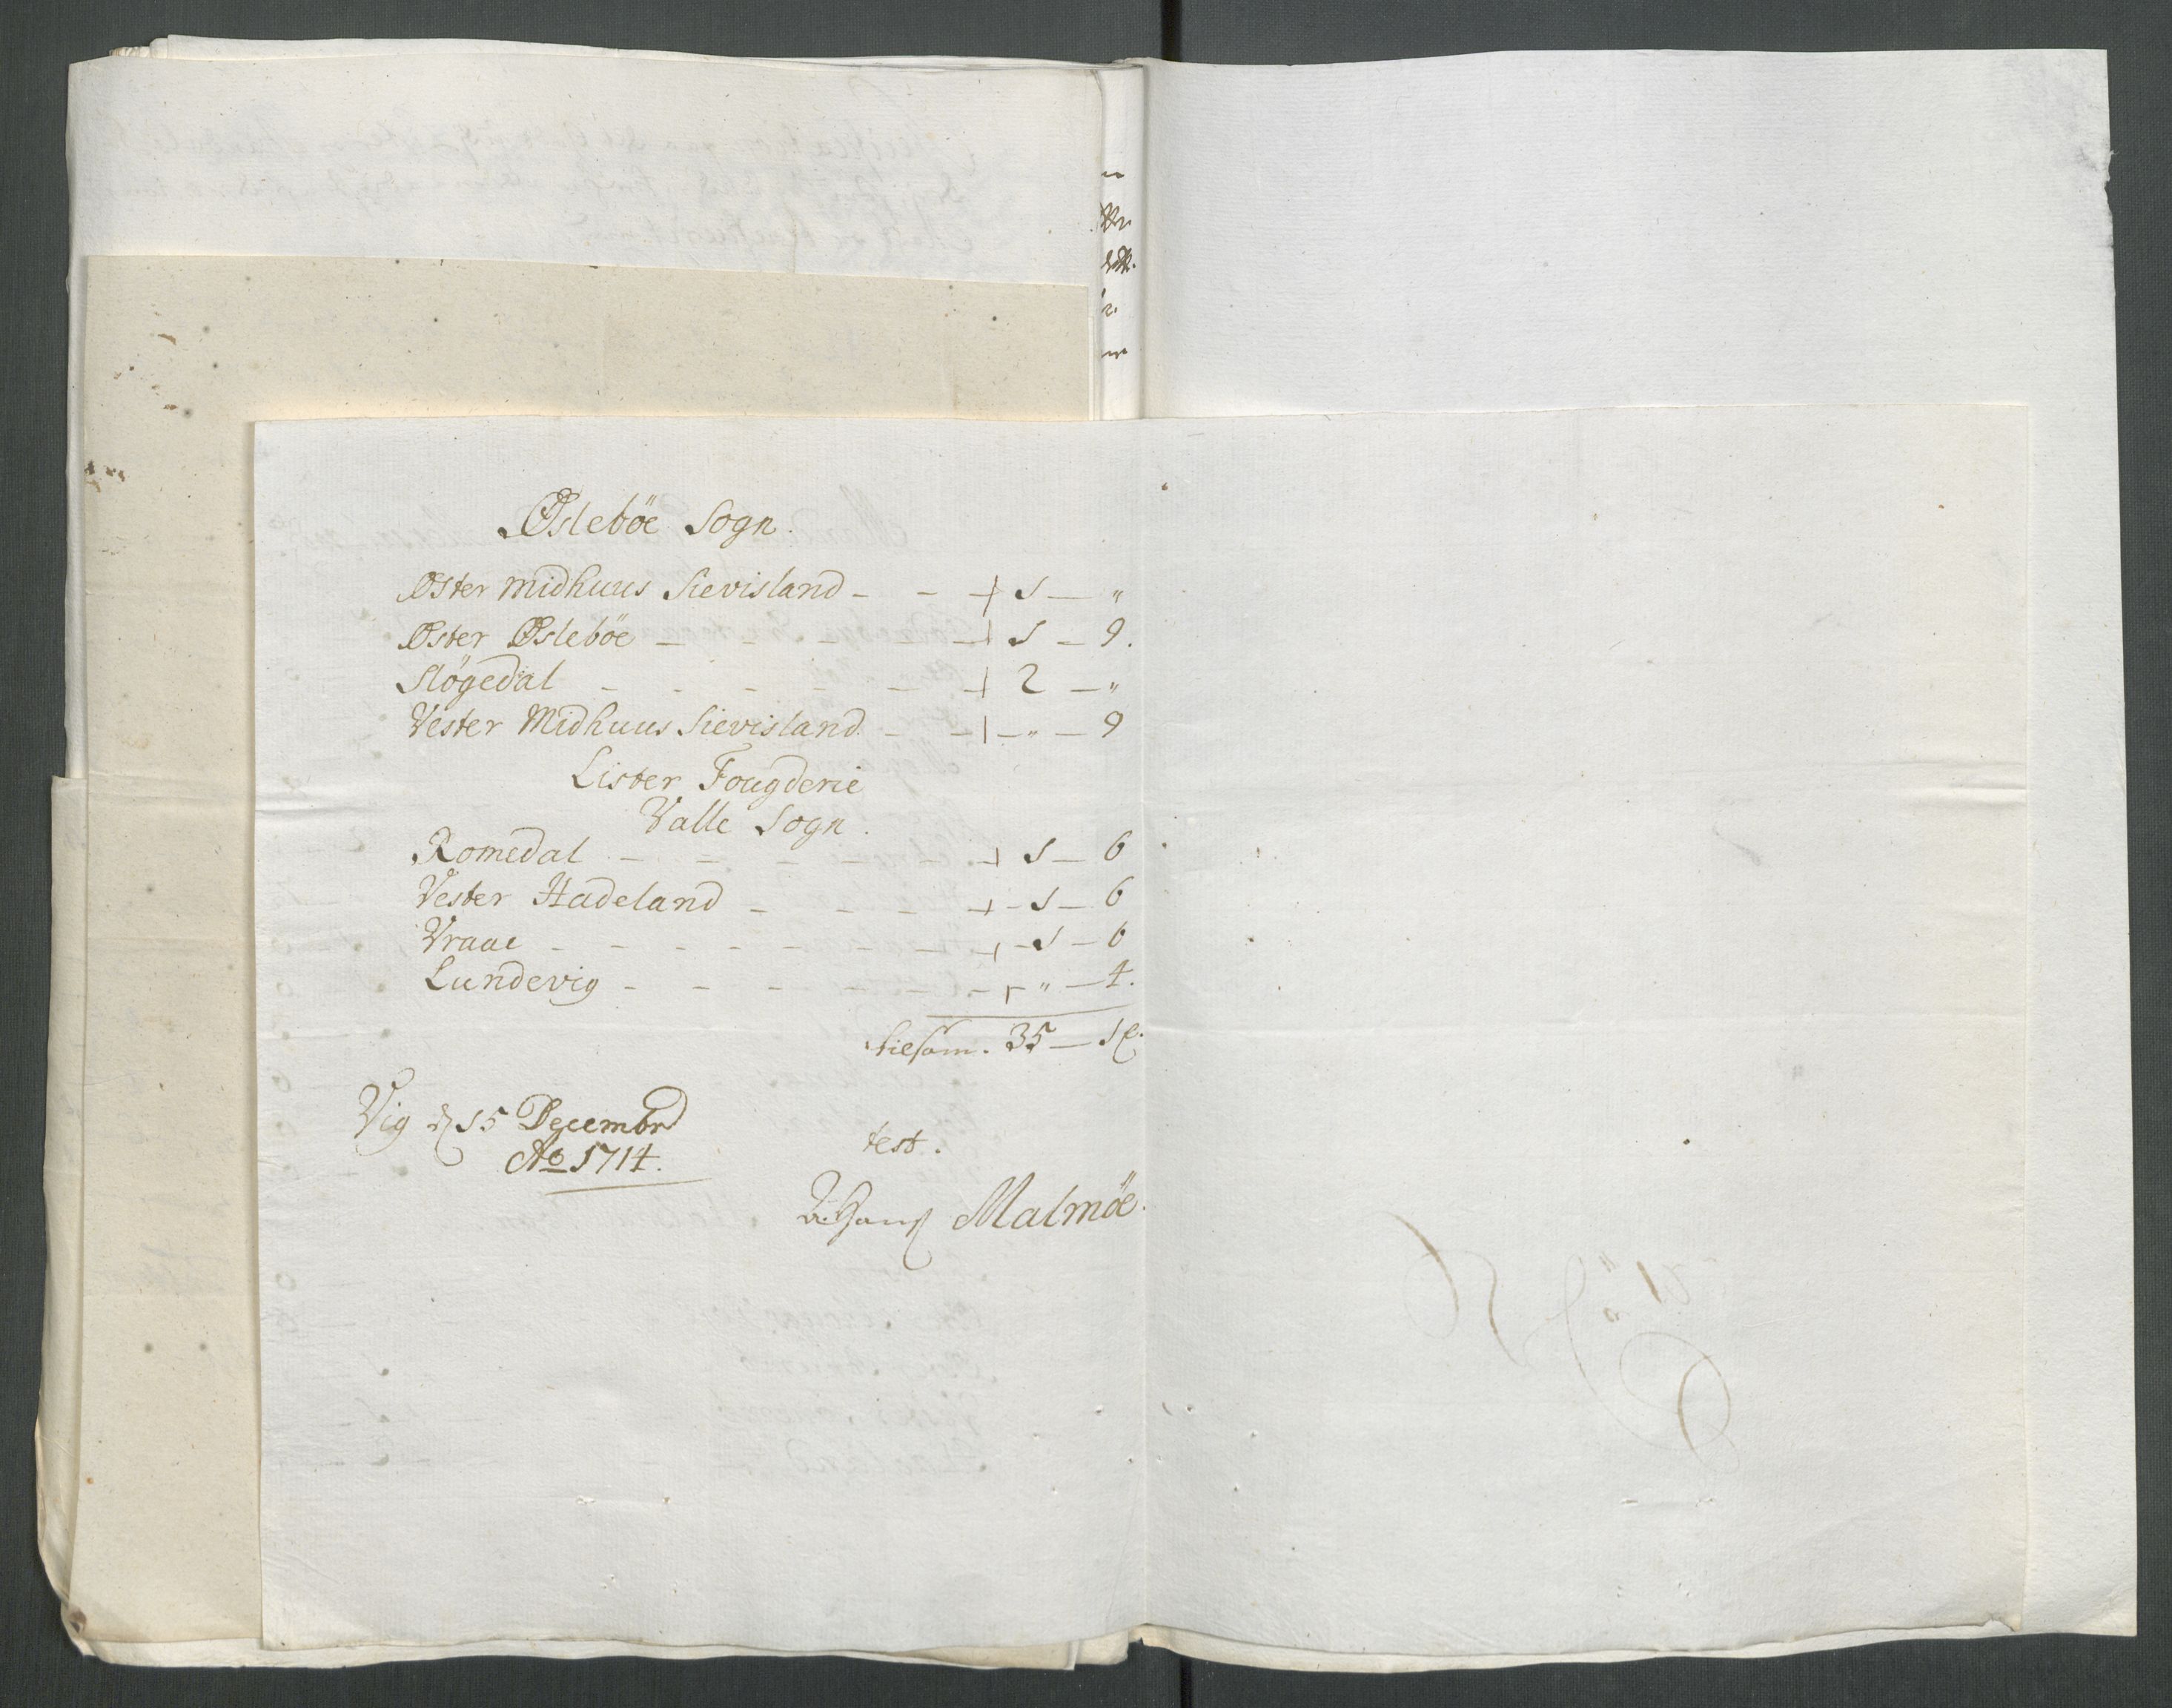 Øsleböe Sogn.
Øster Midhuus Sievisland - - + 1 - "
Øster Øsleböe - - - - + 1 - 9.
Slögedal - - - - - + 2 - "
Vester Midhuus Sievisland - - + - " - 9
Lister Fougderie
Valle Sogn.
Romedal - - - - - + 1 - 6
Vester Hadeland - - - + - 1 - 6
Vraae - - - - - - - + - 1 - 6
Lundevig - - - - - - + " - 4.
tilsam. 35 -
Vig d 15 Decembr
Ao 1714.
test.
Malmöe.